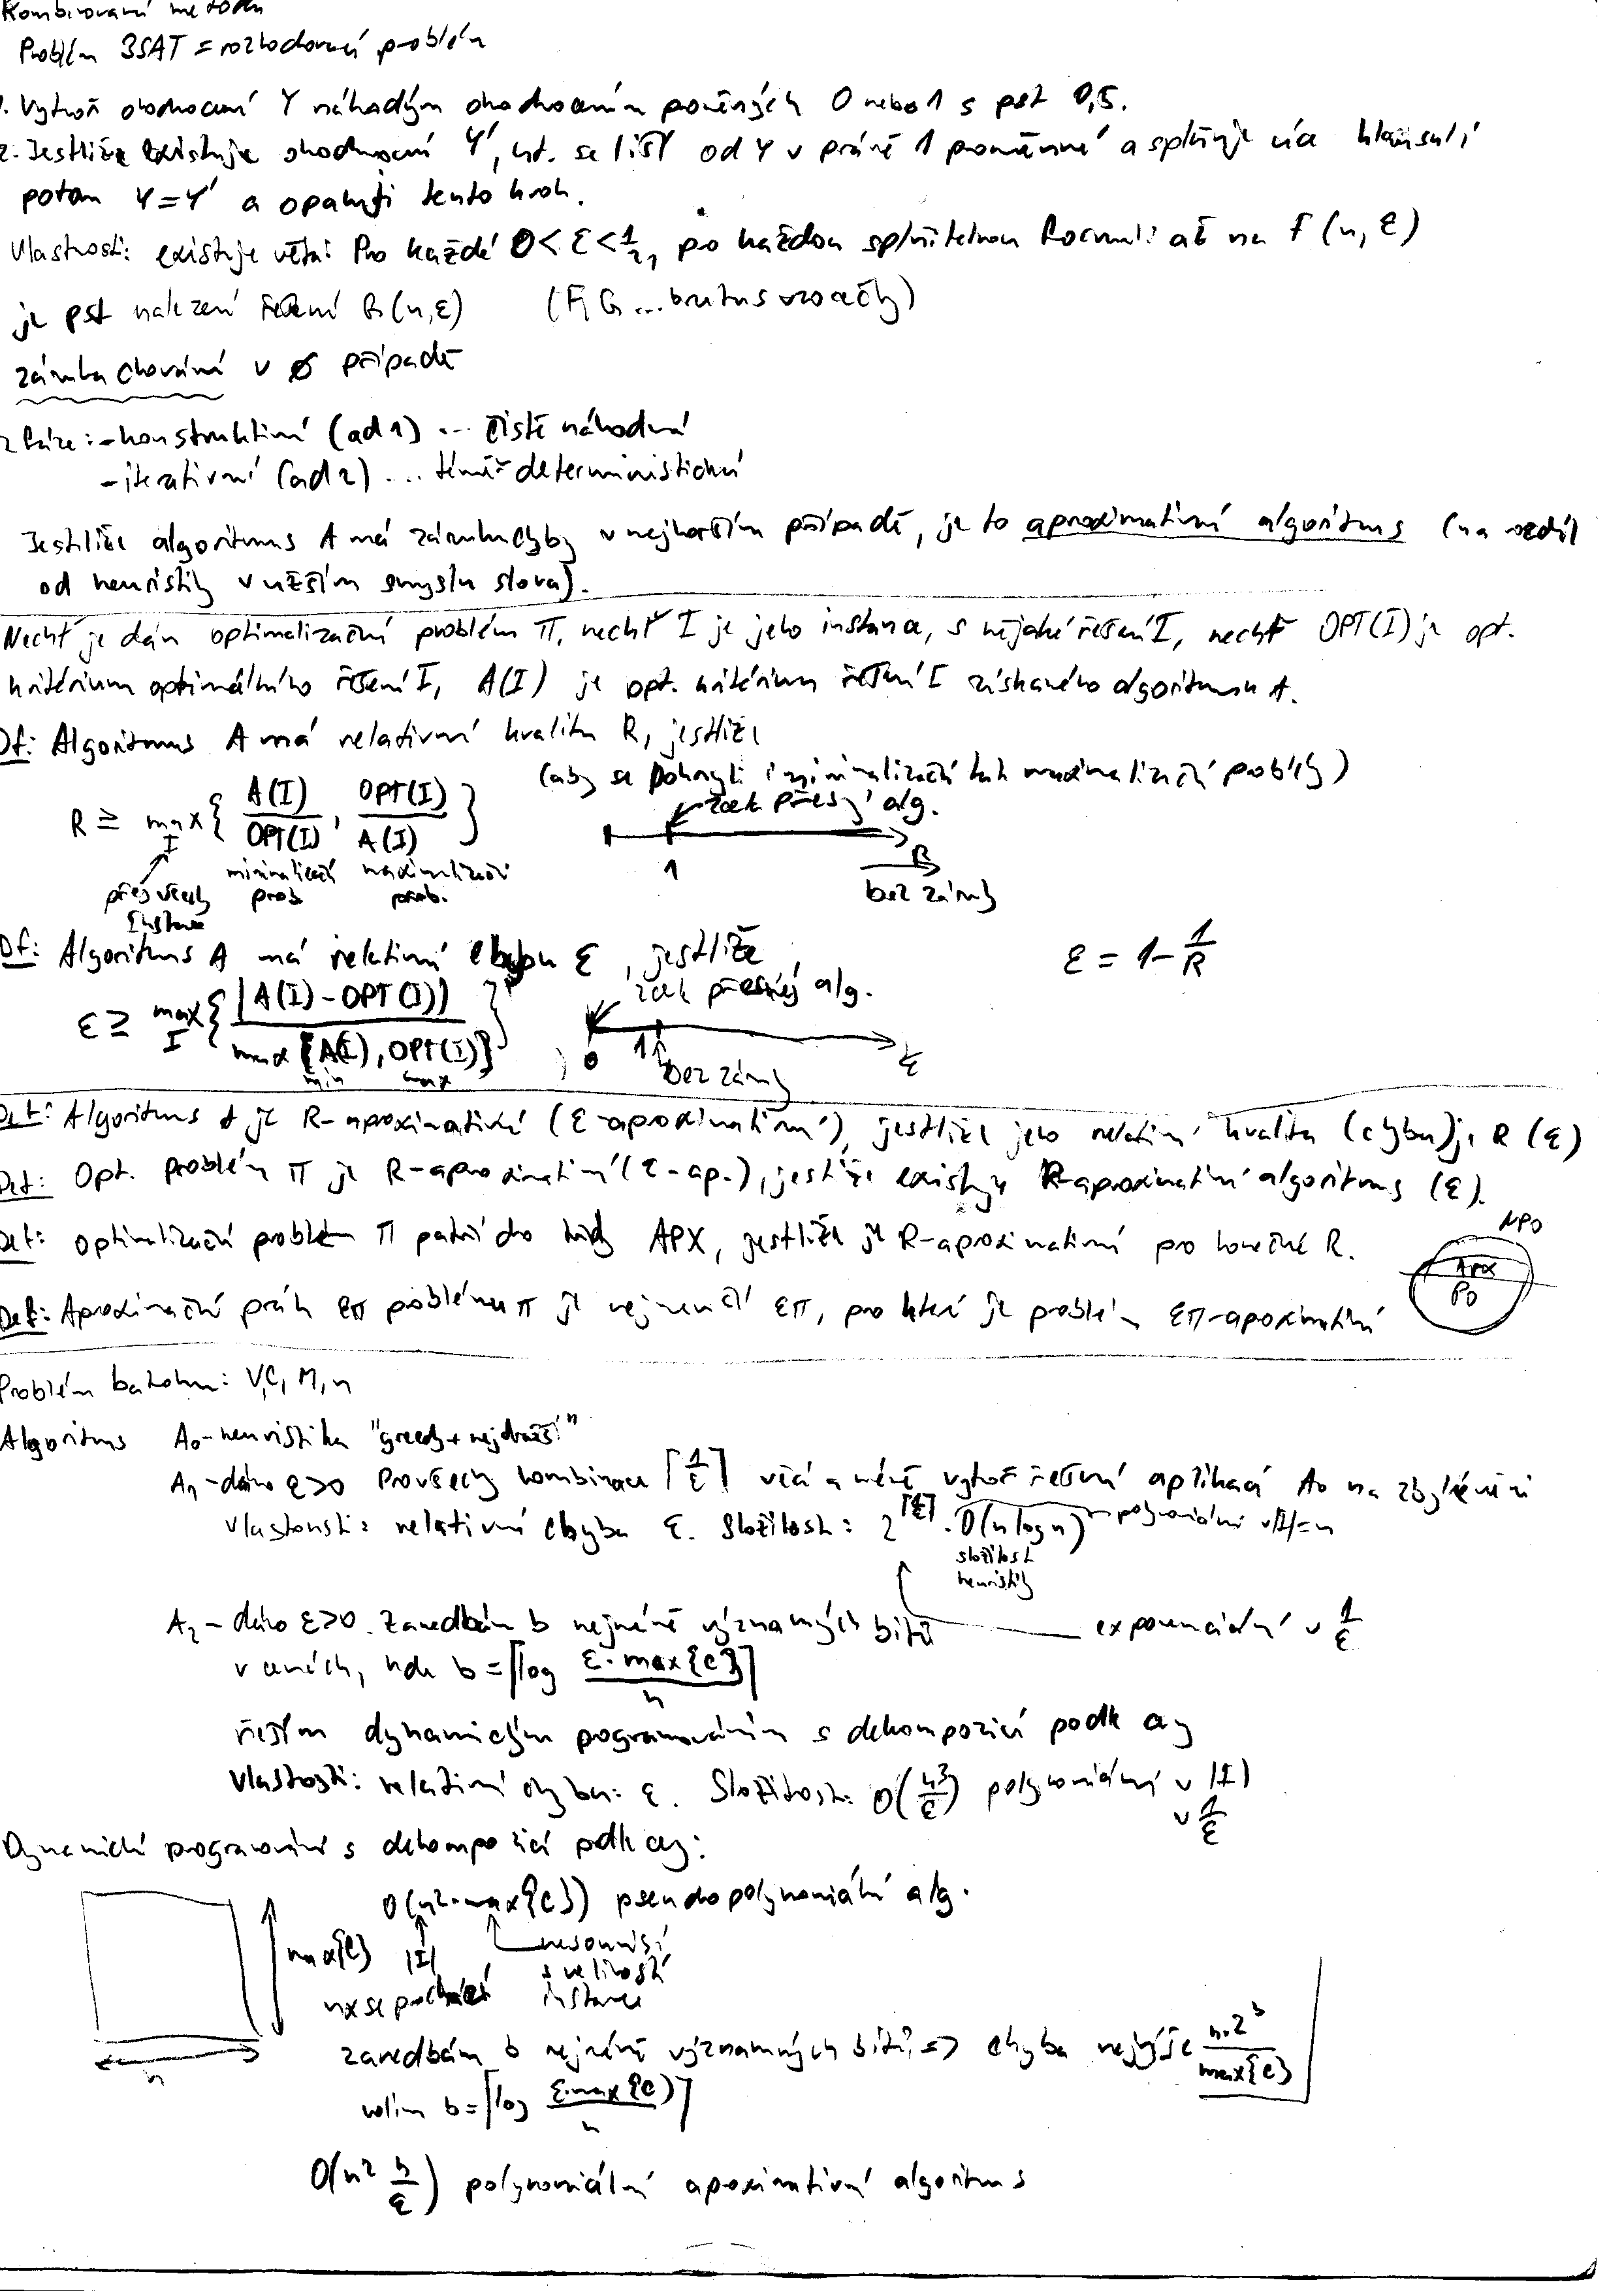 Kombinované metody
Problém 3SAT = rozhodovací problém
1. Vytvoř ohodnocení Y náhodným ohodnocením proměnných 0 nebo 1 s pst 0,5.
2. Jestliže existuje ohodnocení Y', kt. se liší od Y v právě 1 proměnné a splňuje více klauzulí
potom Y=Y' a opakuj tento krok.
Vlastnosti: existuje věta: Pro každé 0 < ε < 1/2, po každou splnitelnou formuli až na F(n, ε)
je pst nalezení řešení G(n, ε) (F, G ... brutus vzorečky)
záruka chování v ø případě
2 fáze: - konstruktivní (ad 1) ... čistě náhodná
- iterativní (ad 2) ... téměř deterministická
Jestliže algoritmus A má záruku chyby v nejhorším případě, je to aproximativní algoritmus (na rozdíl
od heuristiky v užším smyslu slova).
Nechť je dán optimalizační problém Π, nechť I je jeho instance, s nějaké řešení I, nechť OPT(I) je opt.
kritérium optimálního řešení I, A(I) je opt. kritérium řešení I získaného algoritmem A.
Df: Algoritmus A má relativní kvalitu R, jestliže
(aby se pokryly i minimalizační tak maximalizační probl'my)
R ≥ max I { A(I)/OPT(I), OPT(I)/A(I) }
zcela přesný alg.
1 R
přes všechny instance
minimalizač prob. maximalizační prob.
bez záruky
Df: Algoritmus A má relativní chybu ε, jestliže
ε = 1 - 1/R
zcela přesný alg.
ε ≥ max I { |A(I) - OPT(I)| / max{A(I), OPT(I)} }
min max
0 1 ε
bez záruky
Def: Algoritmus A je R-aproximativní (ε-aproximativní), jestliže jeho relativní kvalita (chyba) je R (ε)
Def: Opt. problém Π je R-aproximativní (ε-ap.), jestliže existuje R-aproximativní algoritmus (ε).
Def: optimalizační problém Π patří do třídy APX, jestliže je R-aproximativní pro konečné R.
NPO
APX
PO
Def: Aproximační práh εΠ problému Π je nejmenší εΠ, pro které je problém εΠ-aproximativní
Problém batohu: V, C, M, n
Algoritmus A₀ - heuristika "greedy + nejdražší"
A₁ - dáno ε>0 Pro všechny kombinace ⌈1/ε⌉ věcí a méně vytvoř řešení aplikací A₀ na zbylé věci
Vlastnosti: relativní chyba ε. Složitost: 2^⌈1/ε⌉ · O(n log n) polynomiální v |I|=n
složitost
heuristiky
exponenciální v 1/ε
A₂ - dáno ε>0. Zanedbám b nejméně významných bitů
v cenách, kde b = ⌈log ε·max{C}/n⌉
řeším dynamickým programováním s dekompozicí podle ceny
Vlastnosti: relativní chyba: ε. Složitost: O(n³/ε) polynomiální v |I|
v 1/ε
Dynamické programování s dekompozicí podle ceny:
O(n²·max{C}) pseudopolynomiální alg.
max{C} |I| nesouvisí
s velikostí
nx se prochází instance
n
zanedbám b nejméně významných bitů => chyba nejvýše n·2^b/max{C}
volím b = ⌈log ε·max{C}/n⌉
O(n² n/ε) polynomiální aproximativní algoritmus